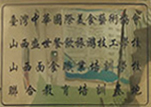 臺灣中華國際美食藝術協會
山西盛世餐飲旅遊技工學校
山西食際業培訓技校
聯合教育培訓基地